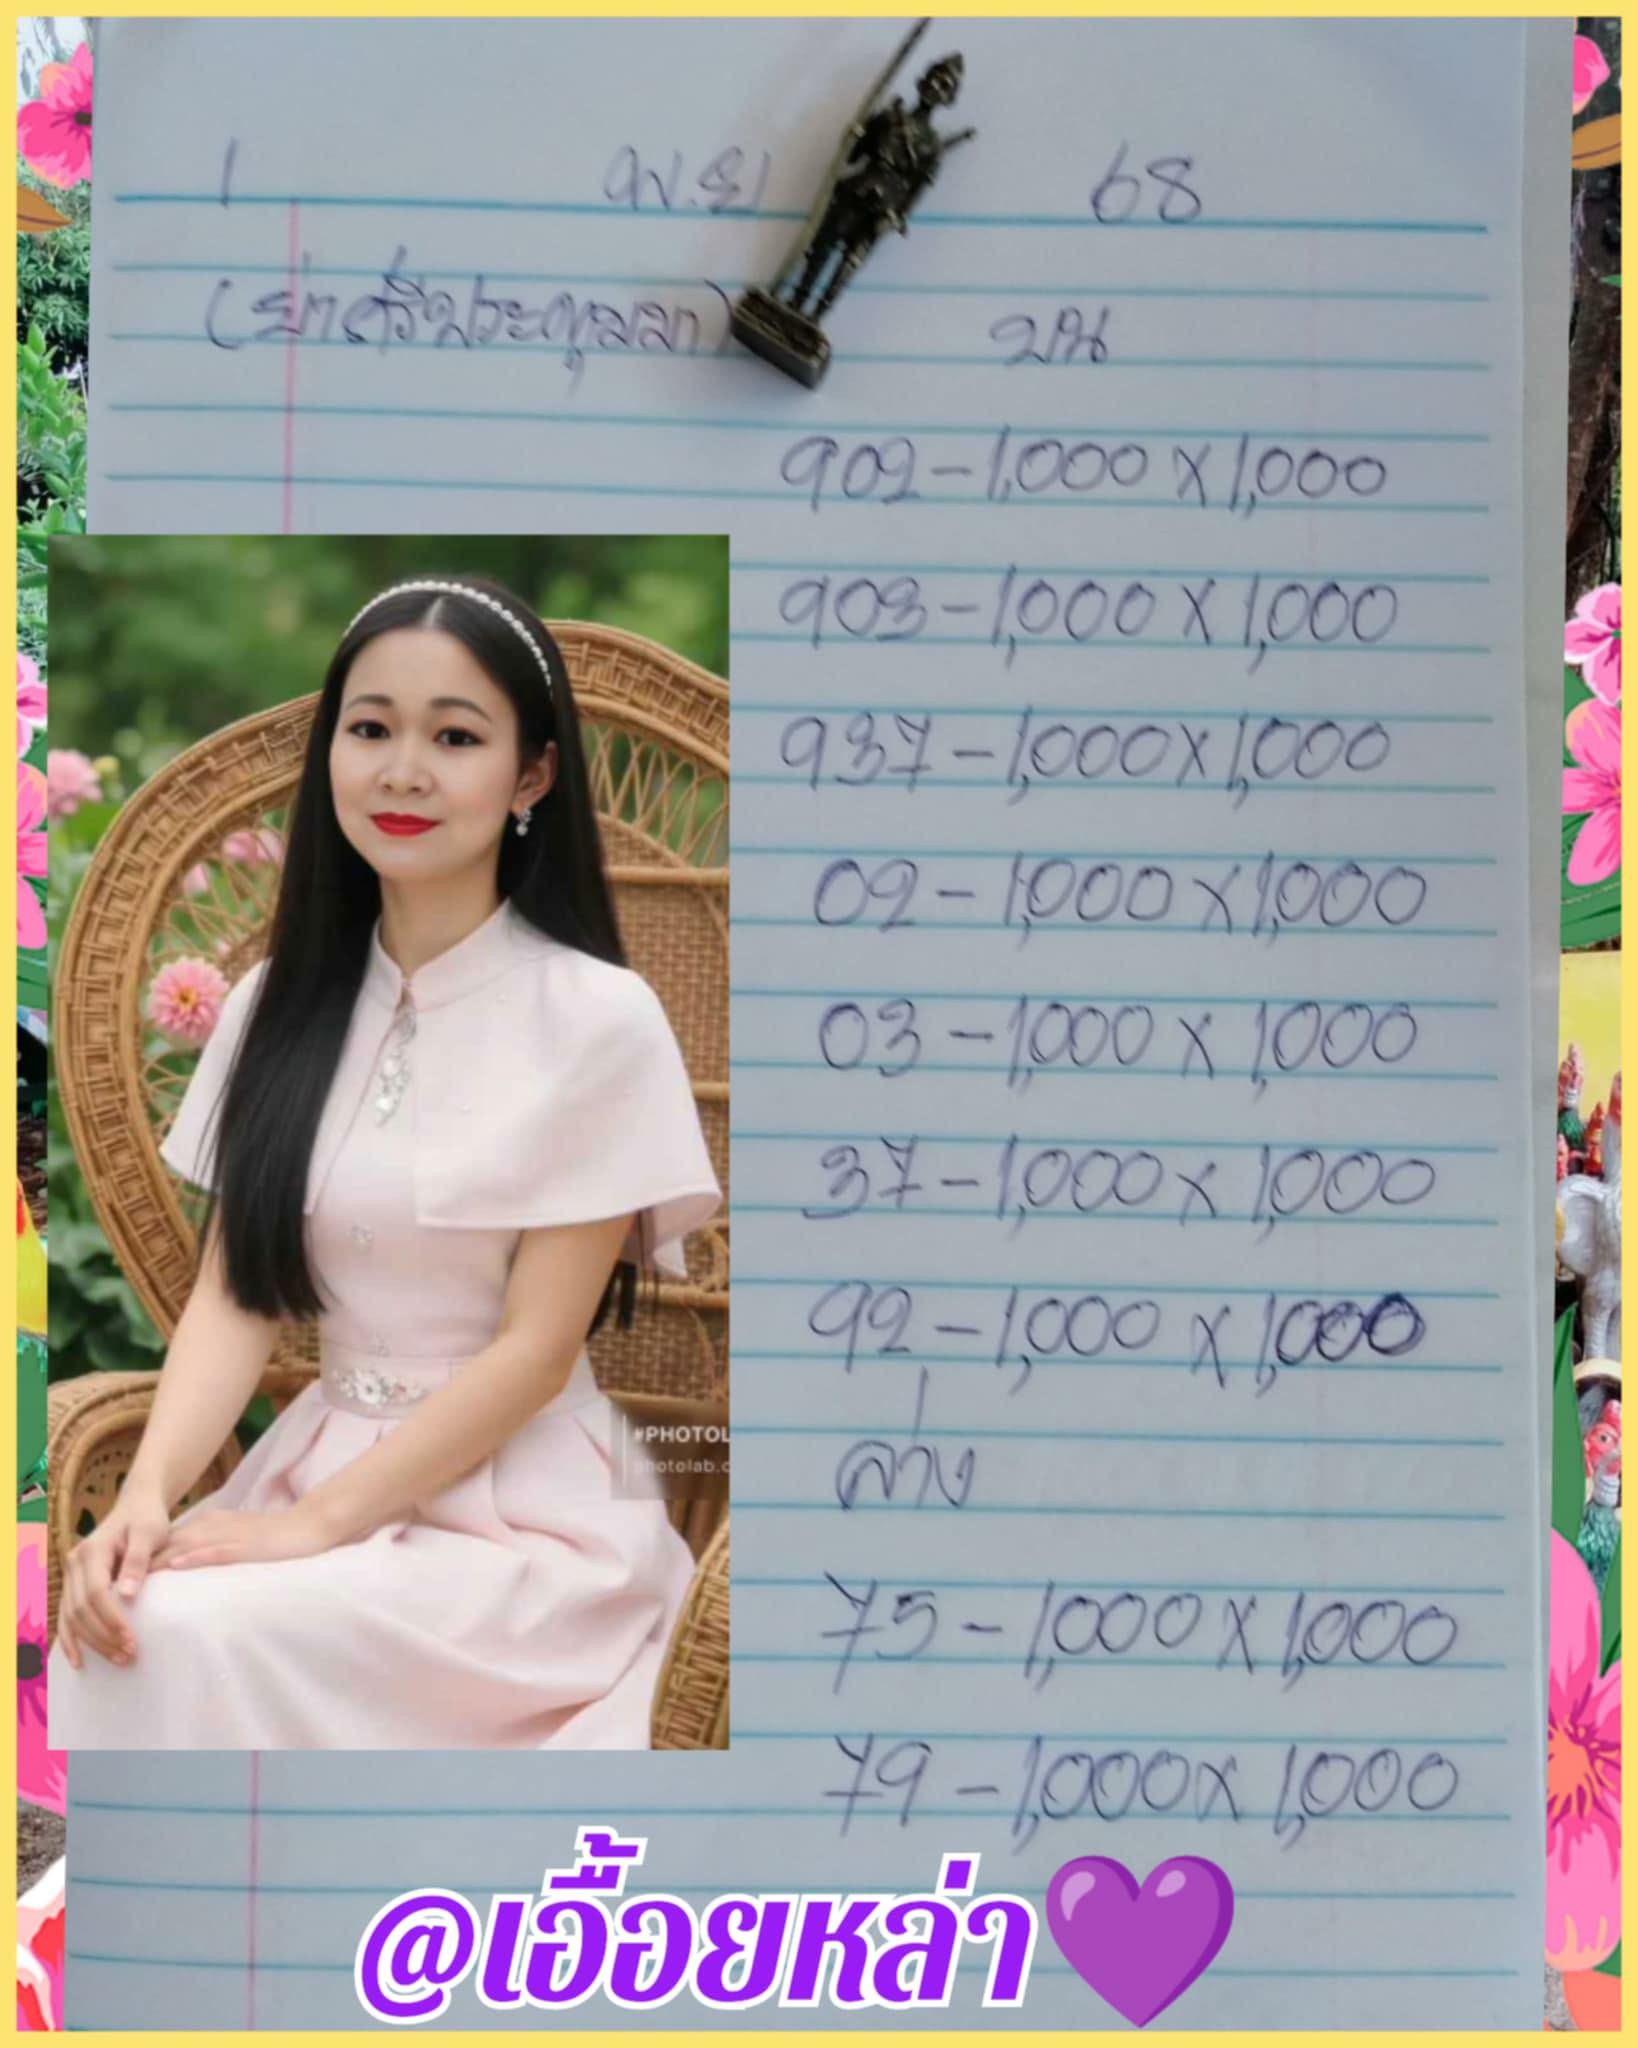 1 พ.ย 68
(ย่าศรีปะทุมมา) บน
902-1,000 X 1,000
903-1,000 X 1,000
937-1,000X1,000
02-1,000 X 1,000
03-1,000 X 1,000
37-1,000 X 1,000
92-1,000 X 1,000
ล่าง
75-1,000 X 1,000
79-1,000X 1,000
#PHOTOL
photolab.c
@เอื้อยหล่า